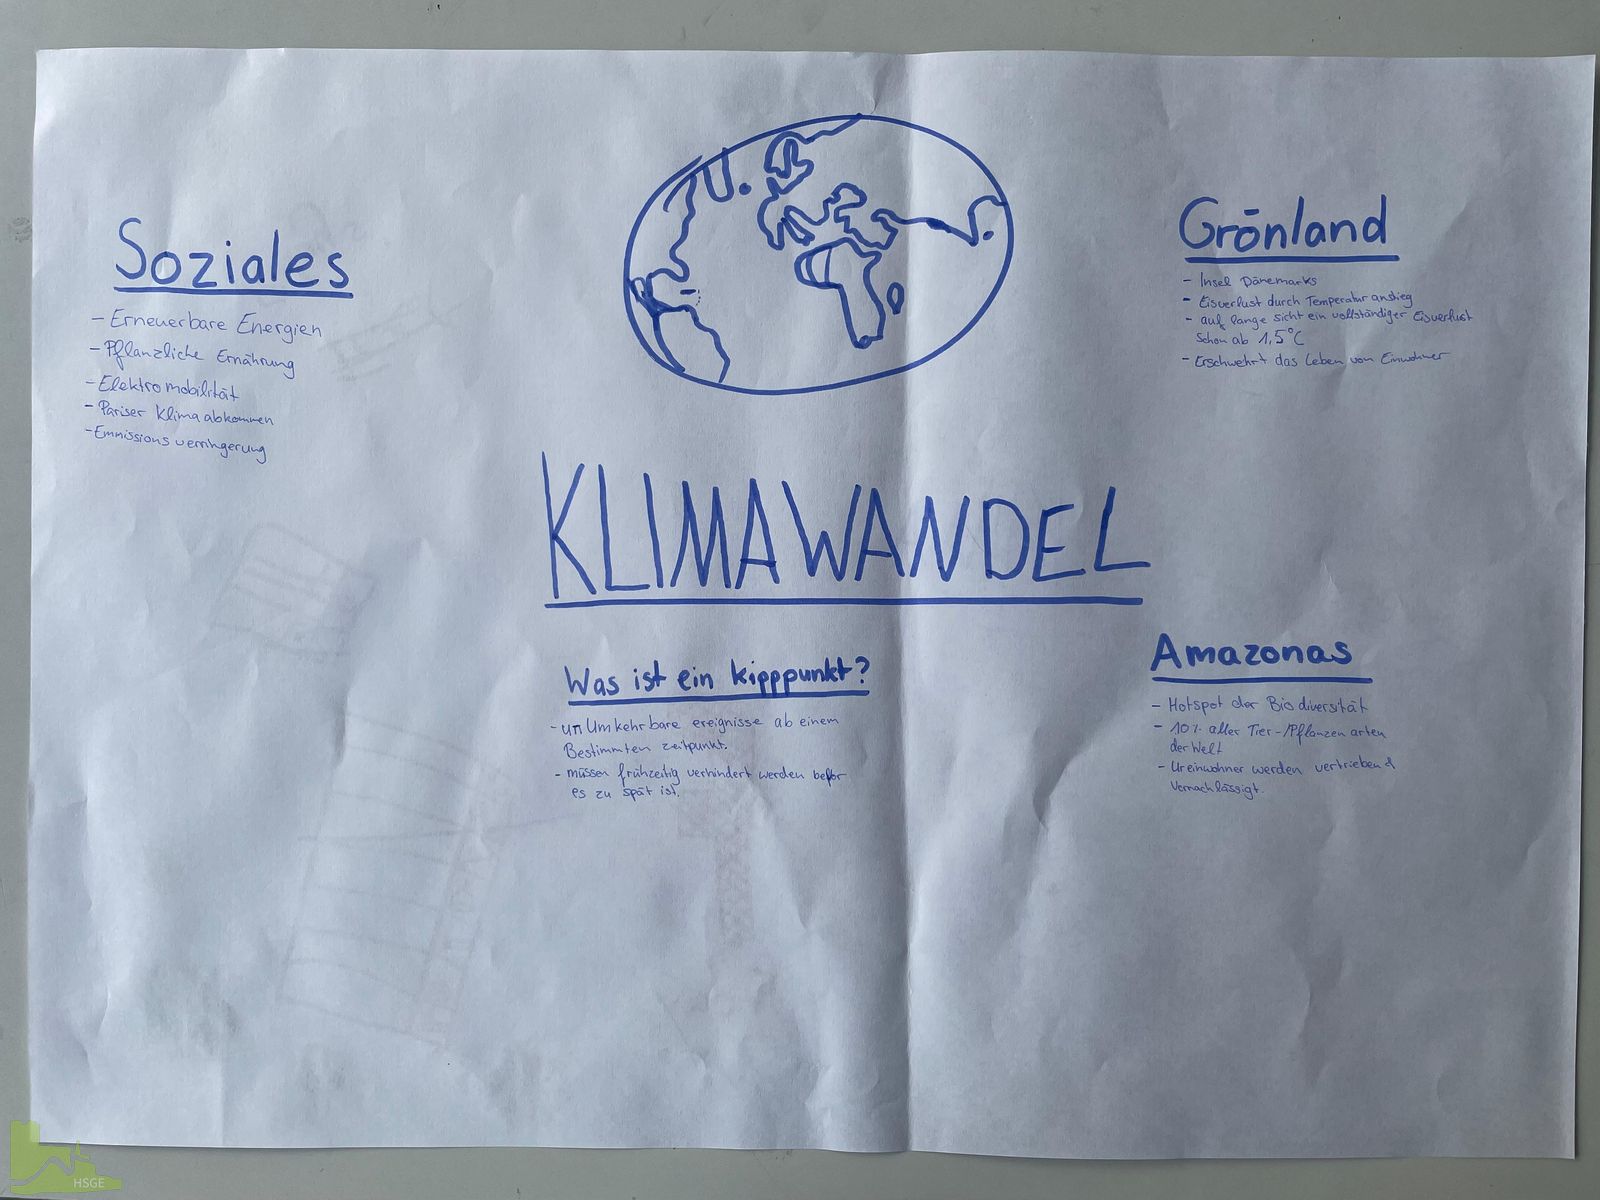 Soziales
- Erneuerbare Energien
- Pflanzliche Ernährung
- Elektromobilität
- Pariser Klimaabkommen
- Emmissionsverringerung
Grönland
- Insel Dänemarks
- Eisverlust durch Temperaturanstieg
- auf lange sicht ein vollständiger Eisverlust
schon ab 1,5°C
- Erschwehrt das Leben von Einwohner
KLIMAWANDEL
Was ist ein kipppunkt?
- unUmkehrbare ereignisse ab einem
Bestimmten zeitpunkt.
- müssen frühzeitig verhindert werden befor
es zu spät ist.
Amazonas
- Hotspot der Biodiversität
- 10% aller Tier-/Pflanzen arten
der Welt
- Ureinwohner werden vertrieben &
vernachlässigt.
HSGE